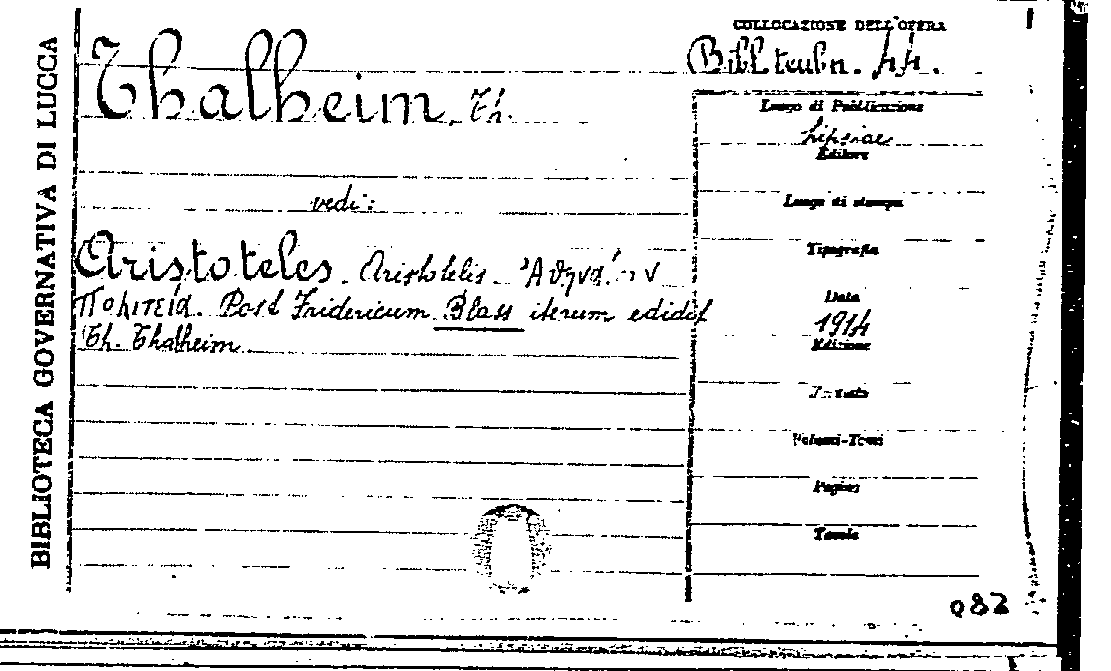 BIBLIOTECA GOVERNATIVA DI LUCCA
COLLOCAZIONE DELL'OPERA
Bibl. teubn. 44.
Thalheim, Th.
Luogo di Pubblicazione
Lipsiae
Editore
vedi:
Luogo di stampa
Tipografia
Aristoteles. Aristotelis
Πολιτεία. Post Fridericum Blass iterum edidit
Th. Thalheim
Data
1914
Edizione
Formato
Volumi-Tomi
Pagine
Tavole
082